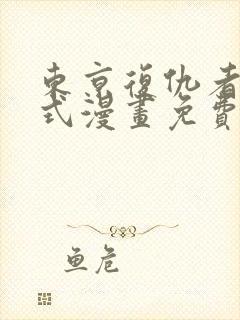 東京復仇者
式漫畫免費
鱼危